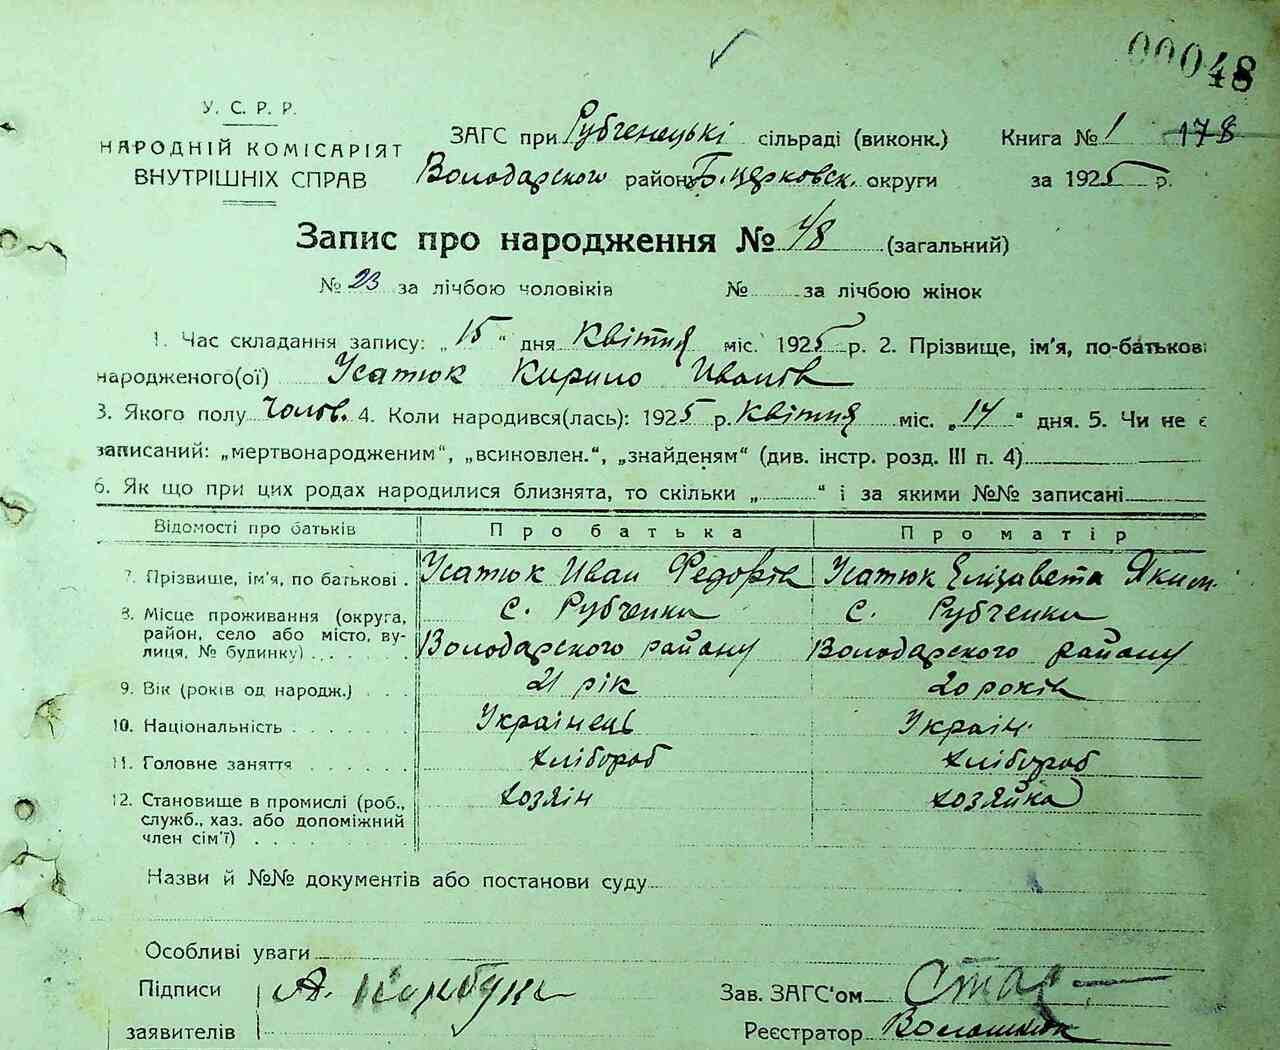 00048
У. С. Р. Р.
НАРОДНІЙ КОМІСАРІЯТ
ВНУТРІШНІХ СПРАВ
ЗАГС при Рубченецькі сільраді (виконк.) Книга № 1 178
Володарского району Б. церковск. округи за 1925 р.
Запис про народження № 48 (загальний)
№ 23 за лічбою чоловіків № за лічбою жінок
1. Час складання запису: „ 15 “ дня Квітня міс. 1925 р. 2. Прізвище, ім'я, по-батькові
народженого(ої) Усатюк Кирило Иванов
3. Якого полу Чолов. 4. Коли народився(лась): 1925 р. Квітня міс. „ 14 “ дня. 5. Чи не є
записаний: „мертвонародженим“, „всиновлен.“, „знайденям“ (див. інстр. розд. III п. 4)
6. Як що при цих родах народилися близнята, то скільки „ “ і за якими №№ записані
Відомості про батьків Про батька Про матір
7. Прізвище, ім'я, по батькові . Усатюк Иван Федорів Усатюк Елізавета Яким.
8. Місце проживання (округа, с. Рубченки с. Рубченки
район, село або місто, ву-
лиця, № будинку) . . . . . Володарского району Володарского району
9. Вік (років од народж.) . . . 21 рік 20 років
10. Національність . . . . . . Українець Україн.
11. Головне заняття . . . . хлібороб хлібороб
12. Становище в промислі (роб., хозяін хозяйка
служб., хаз. або допоміжний
член сім'ї) . . . . . . . .
Назви й №№ документів або постанови суду
Особливі уваги
Підписи А.
заявителів
Зав. ЗАГС'ом
Реєстратор Волошинюк